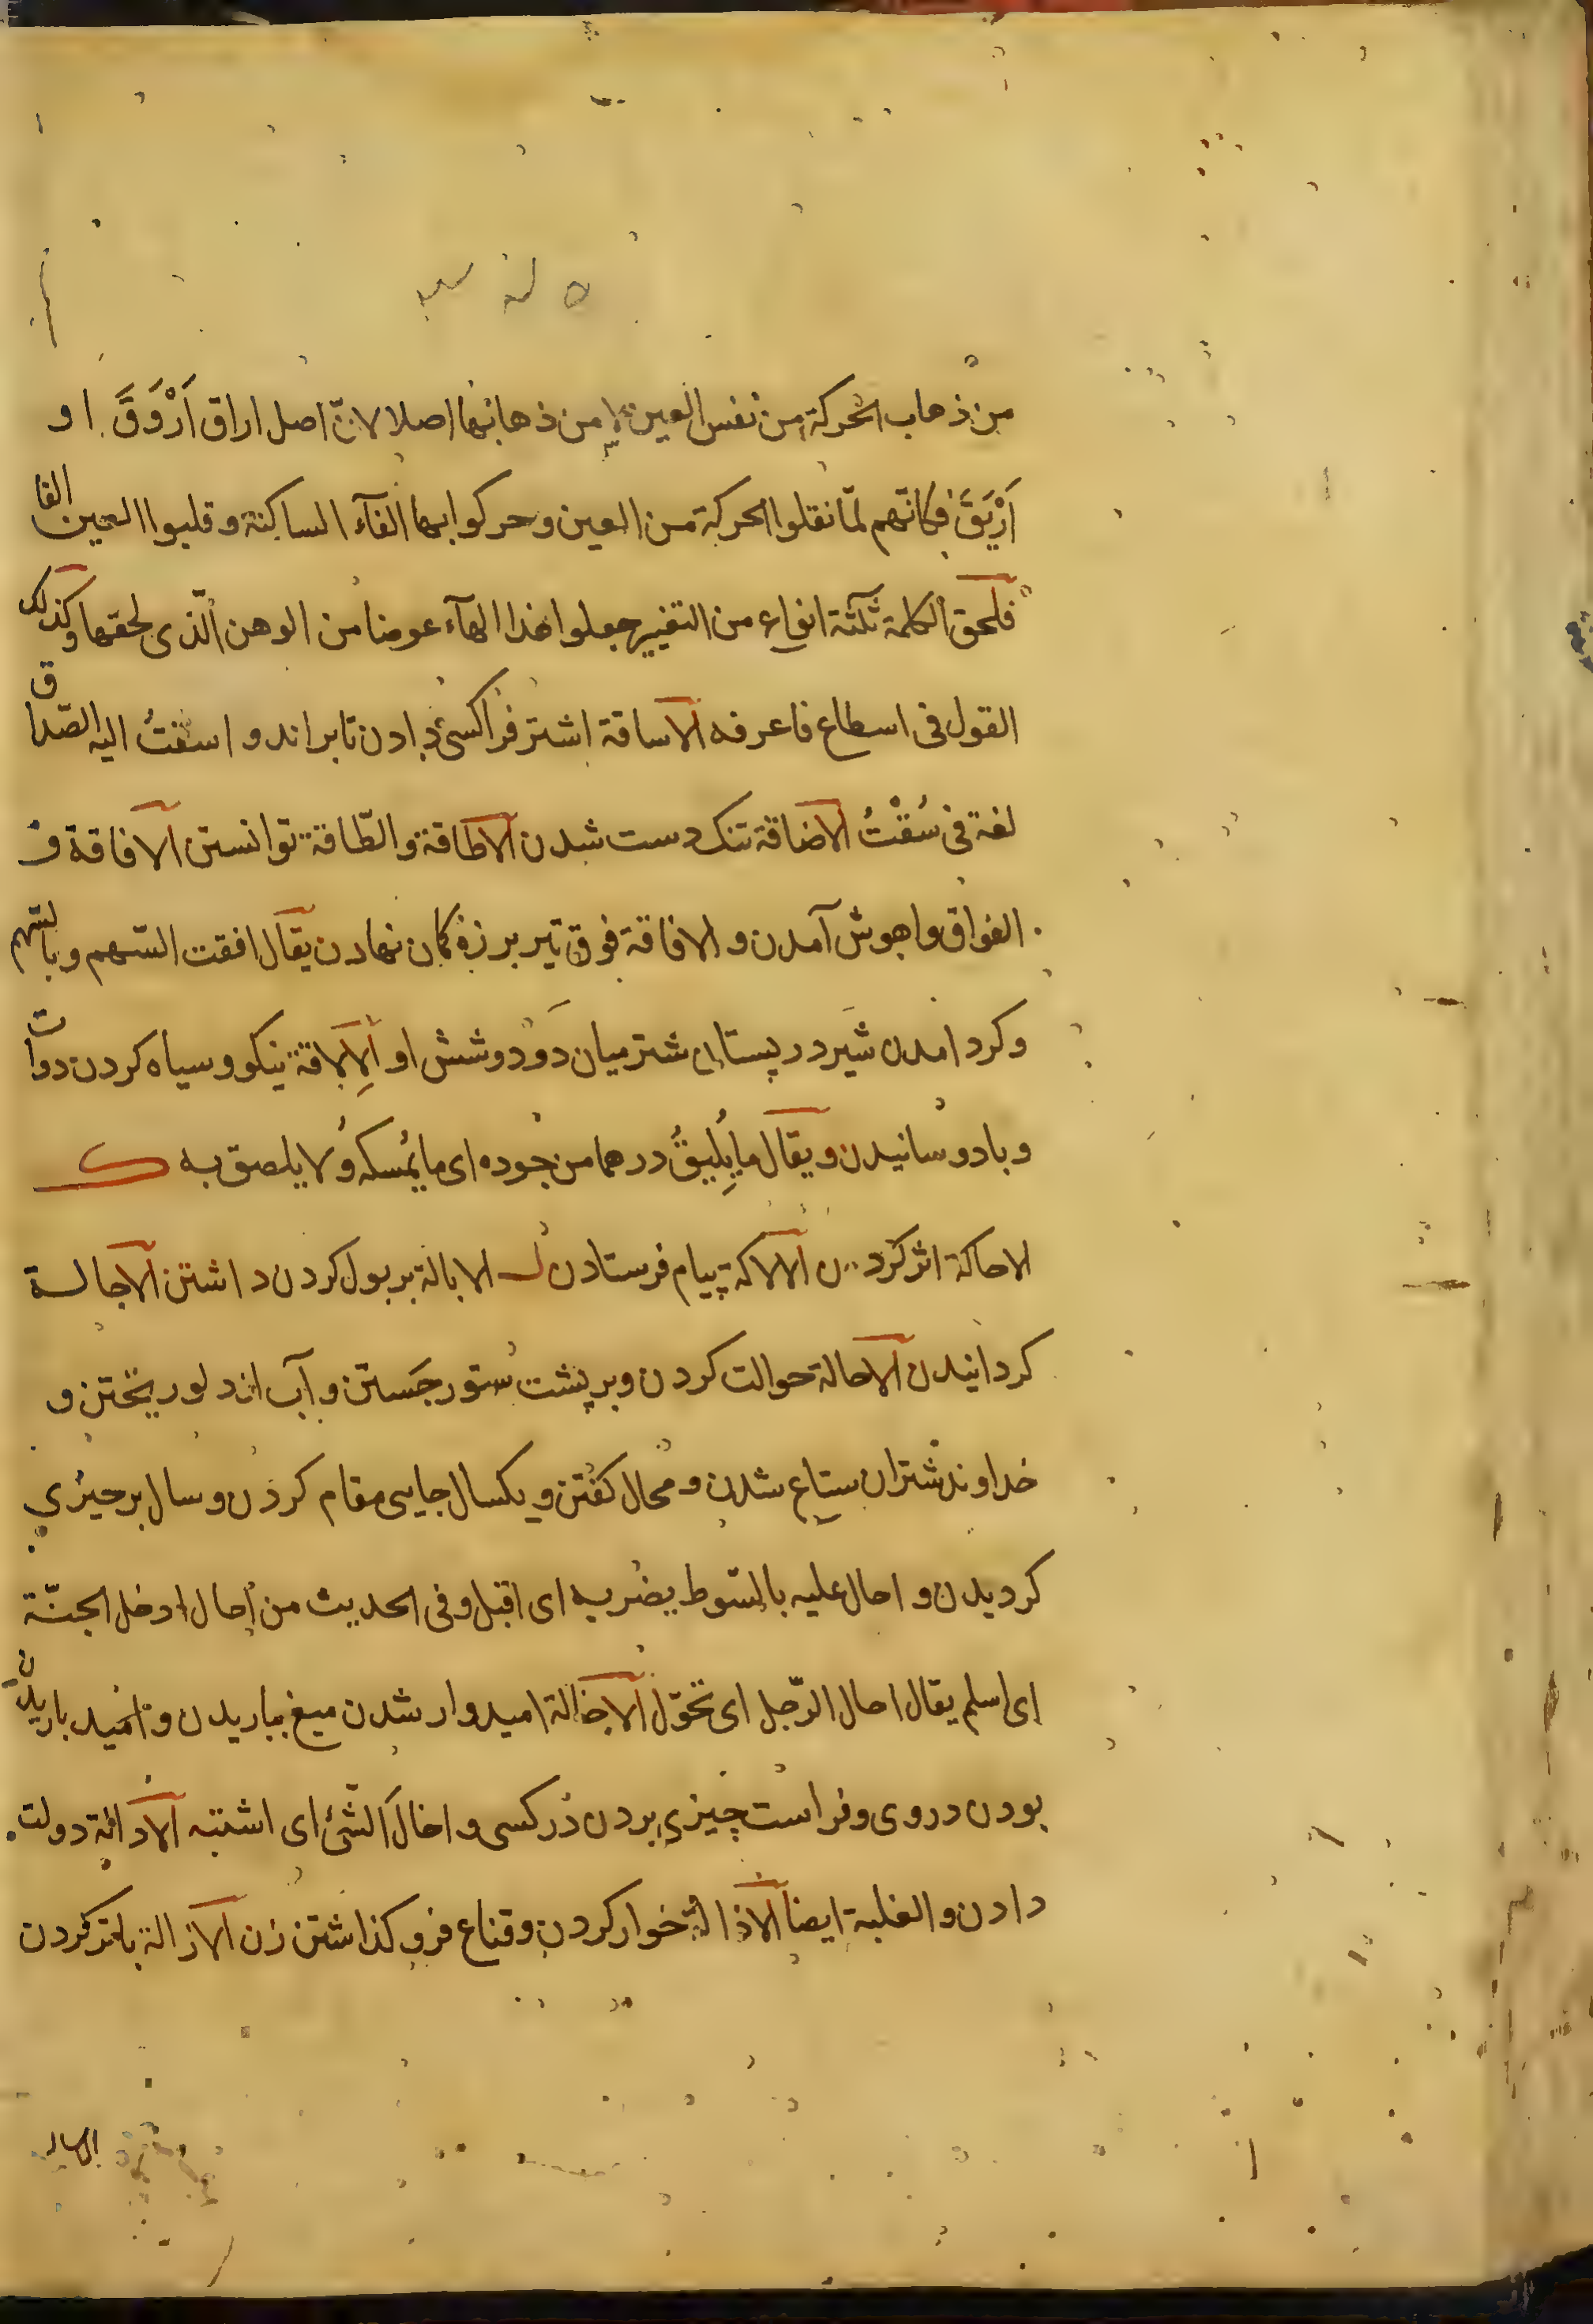 من ذهاب الحركة من نفس العين لا من ذهابها اصلا لانّ اصل اراق اَرْوَقَ او
اَرْيَقَ فكانّهم لمّا نقلوا الحركة من العين وحركوا بها الفآء الساكنة وقلبوا العين الفا
فلحق الكلمة ثلثة انواع من التغيير جعلوا هذا الهآء عوضا من الوهن الّذى لحقها وكذلك
القول فى اسطاع فاعرفه الاساقة اشتر فراكسى دادن تا براند و اسقتُ اليه الصّداق
لغة فى سُقْتُ الاضاقة تنک دست شدن الاطاقة والطّاقة توانستن الافاقة ف
الفواق واهوش آمدن و الافاقة فوق تير بر زه كمان نهادن يقال افقت السّهم وبالسّهم
وكرد امدن شير در پستان شتر ميان دو دوشش او الاِلاقة نيكو و سياه كردن دوات
و بادوسانيدن و يقال ما يُليقُ درهما من جوده اى ما يُمسكه ولا يلصق به ك
الاحاكة اثر كردن الالاكة پيام فرستادن ل الابالة بر بول كردن داشتن الاجالة
كردانيدن الاحالة حوالت كردن و بر پشت ستور جَستن و آب اندلو ريختن و
خداوند شتران ستاع شدن و محال كفتن و يكسال جايى مقام كردن و سال بر حيزي
كرديدن و احال عليه بالسّوط يضربه اى اقبل وفى الحديث من احال دخل الجنّة
اى اسلم يقال احال الرّجل اى تحوّل الاخالة اميدوار شدن ميغ بباريدن و اميد باريدن
بودن دروى و فراست چيزي بردن در كسى و اخالَ الشّئ اى اشتبه الادالة دولت
دادن و الغلبة ايضا الاذالة خوار كردن و قناع فرو كذاشتن زن الازالة باتر كردن